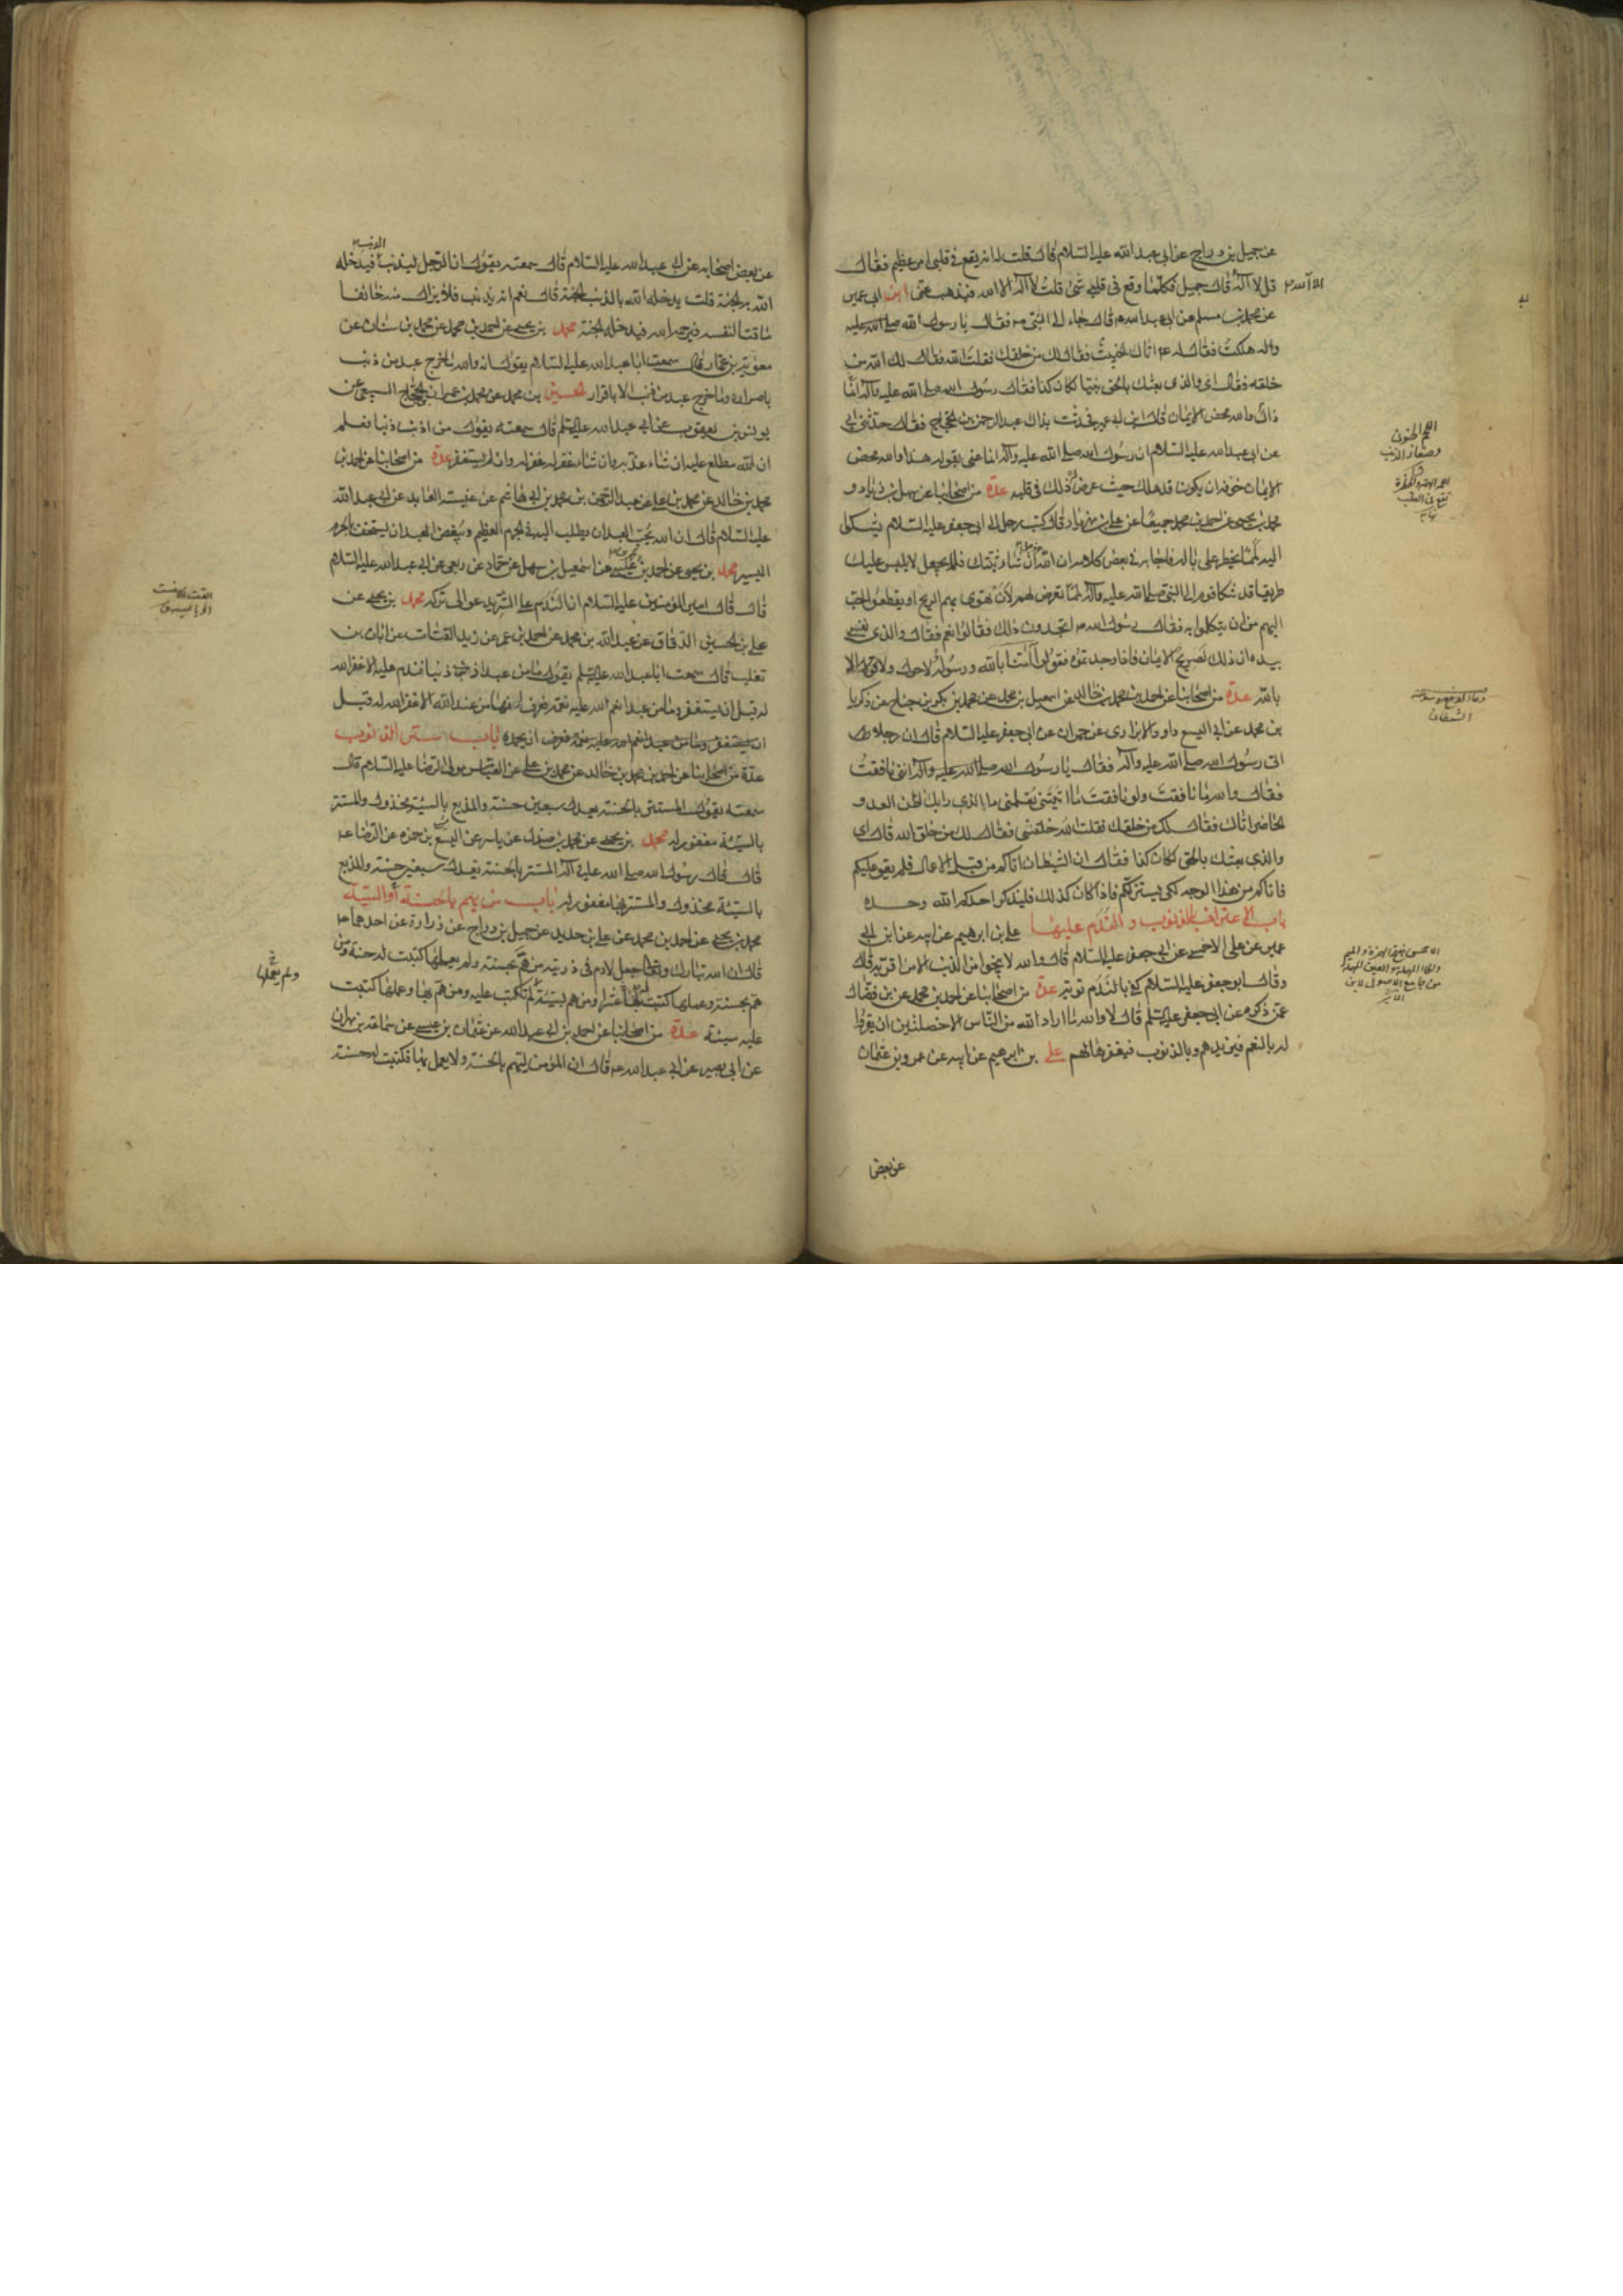 عن جميل بن دراج عن ابى عبد الله عليه السلام قال قلت له انه يقع فى قلبى امر عظيم فقال
قل لا اله قال جميل فكلما وقع فى قلبى شئ قلت لا اله الا الله فيذهب عنى ابن ابى عمير
الا الله
عن محمد بن مسلم عن ابى عبد الله ع قال جاء رجل الى النبى ص فقال يا رسول الله صلى الله عليه
واله هلكت فقال له ع اتاك الخبيث فقال لك من خلقك فقلت الله فقال لك الله من
خلقه فقال اى والذى بعثك بالحق نبيا لكان كذا فقال رسول الله صلى الله عليه واله انما
ذاك والله محض الايمان قال ابن ابى عمير فحدثت بذاك عبد الرحمن بن الحجاج فقال حدثنى ابى
عن ابى عبد الله عليه السلام ان رسول الله صلى الله عليه واله انما عنى بقوله هذا والله محض
الايمان خوفه ان يكون قد هلك حيث عرض له ذلك فى قلبه عدة من اصحابنا عن سهل بن زياد و
محمد بن يحيى عن احمد بن محمد جميعا عن على بن مهزيار قال كتب رجل الى ابى جعفر عليه السلام يشكو
اليه لمما يخطر على باله فاجابه فى بعض كلامه ان الله ان شاء ثبتك فلا يجعل لابليس عليك
طريقا قد شكا قوم الى النبى صلى الله عليه واله لمما يعرض لهم لان تهوى بهم الريح او يقطعوا احب
اليهم من ان يتكلموا به فقال رسول الله ص اتجدون ذلك فقالوا نعم فقال والذى نفسى
بيده ان ذلك لصريح الايمان فاذا وجدتموه فقولوا آمنا بالله ورسوله لا حول ولا قوة الا
بالله عدة من اصحابنا عن احمد بن محمد بن خالد عن اسمعيل بن محمد عن محمد بن بكر بن جناح عن زكريا
بن محمد عن ابى اليسع داود الابزارى عن حمران عن ابى جعفر عليه السلام قال ان رجلا
اتى رسول الله صلى الله عليه واله فقال يا رسول الله صلى الله عليه واله اننى نافقت
فقال والله ما نافقت ولو نافقت ما اتيتنى تعلمنى ما الذى رابك اظن العدو
الحاضر اتاك فقال لك من خلقك فقلت الله خلقنى فقال لك من خلق الله قال اى
والذى بعثك بالحق لكان كذا فقال ان الشيطان اتاكم من قبل الاعمال فلم يقو عليكم
فاتاكم من هذا الوجه لكى يستزلكم فاذا كان كذلك فليذكر احدكم الله وحده
باب الاعتراف بالذنوب والندم عليها على بن ابرهيم عن ابيه عن ابن ابى
عمير عن على الاحمسى عن ابى جعفر عليه السلام قال والله لا ينجو من الذنب الا من اقر به قال
وقال ابو جعفر عليه السلام كفى بالندم توبة عدة من اصحابنا عن احمد بن محمد عن بن فضال
عمن ذكره عن ابى جعفر عليه السلم قال لا والله ما اراد الله من الناس الا خصلتين ان يقروا
له بالنعم فيزيدهم وبالذنوب فيغفرها لهم على بن ابرهيم عن ابيه عن عمرو بن عثمان
عن بعض
اللمم الجنون
وصغار الذنب
دعاء لدفع وسوسة
الشيطان
الاحمسى بفتح الهمزة والميم
والحاء المهملة والسين المهملة
من جامع الاصول لابن
الاثير
عن بعض اصحابه عن ابى عبد الله عليه السلام قال سمعته يقول ان الرجل ليذنب الذنب فيدخله
الله به الجنة قلت يدخله الله بالذنب الجنة قال نعم انه ليذنب فلا يزال منه خائفا
ماقتا لنفسه فيرحمه الله فيدخله الجنة محمد بن يحيى عن احمد بن محمد عن محمد بن سنان عن
معوية بن عمار قال سمعت ابا عبد الله عليه السلام يقول انه والله ما خرج عبد من ذنب
باصرار وما خرج عبد من ذنب الا باقرار الحسين بن محمد عن محمد بن عمران بن الحجاج السبيعى عن
يونس بن يعقوب عن ابى عبد الله عليه السلم قال سمعته يقول من اذنب ذنبا فعلم
ان الله مطلع عليه ان شاء عذبه وان شاء غفر له غفر له وان لم يستغفر عدة من اصحابنا عن احمد بن
محمد بن خالد عن محمد بن على عن عبد الرحمن بن محمد بن ابى هاشم عن عنبسة العابد عن ابى عبد الله
عليه السلام قال ان الله يحب العبد ان يطلب اليه فى الجرم العظيم ويبغض العبد ان يستخف بالجرم
اليسير محمد بن يحيى عن احمد بن محمد بن عيسى عن اسمعيل بن سهل عن حماد عن ربعى عن ابى عبد الله عليه السلام
قال قال امير المؤمنين عليه السلام ان الندم على الشر يدعو الى تركه محمد بن يحيى عن
على بن الحسين الدقاق عن عبد الله بن محمد عن احمد بن عمر عن زيد القتات عن ابان بن
تغلب قال سمعت ابا عبد الله عليه السلم يقول ما من عبد اذنب ذنبا فندم عليه الا غفر الله
له قبل ان يستغفر وما من عبد انعم الله عليه نعمة فعرف انها من عند الله الا غفر الله له قبل
ان يحمده باب ستر الذنوب
عدة من اصحابنا عن احمد بن محمد بن خالد عن محمد بن على عن العباس مولى الرضا عليه السلام قال
سمعته يقول المستتر بالحسنة يعدل سبعين حسنة والمذيع بالسيئة مخذول والمستتر
بالسيئة مغفور له محمد بن يحيى عن محمد بن صندل عن ياسر عن اليسع بن حمزه عن الرضا ع
قال قال رسول الله صلى الله عليه واله المستتر بالحسنة يعدل سبعين حسنة والمذيع
بالسيئة مخذول والمستتر بها مغفور له باب من يهم بالحسنة أو السيئة
محمد بن يحيى عن احمد بن محمد عن على بن حديد عن جميل بن دراج عن زرارة عن احدهما ع
قال ان الله تبارك وتعالى جعل لادم فى ذريته من هم بحسنة ولم يعملها كتبت له حسنة ومن
هم بحسنة وعملها كتبت له عشرا ومن هم بسيئة لم تكتب عليه ومن هم بها وعملها كتبت
عليه سيئة عدة من اصحابنا عن احمد بن ابى عبد الله عن عثمان بن عيسى عن سماعة بن مهران
عن ابى بصير عن ابى عبد الله ع قال ان المؤمن ليهم بالحسنة ولا يعمل بها فتكتب له حسنة
ولم يعملها